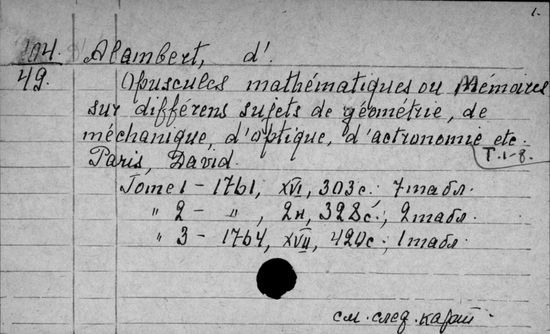 1.
Alambert, d'.
49. Opuscules mathématiques ou Mémoires
sur différens sujets de géométrie, de
méchanique, d'optique, d'actronomie etc.
Paris, David. T. 1-8.
Tome 1 - 1761, XVI, 303 с.; 7 табл.
" 2 - " , 2н, 328 с.; 2 табл.
" 3 - 1764, XVII, 420 с.; 1 табл.
см. след. карт.